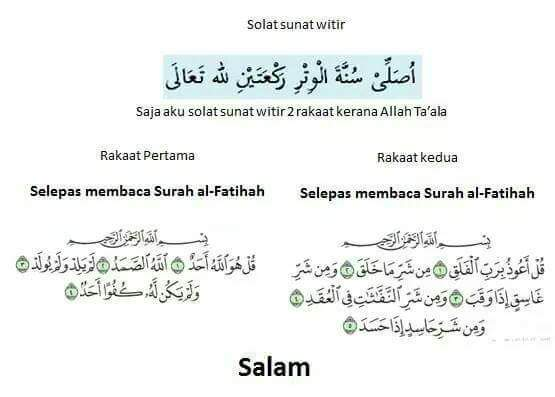 Solat sunat witir
اُصَلِّىْ سُنَّةَ الْوِتْرِ رَكْعَتَيْنِ لله تَعَالَى
Saja aku solat sunat witir 2 rakaat kerana Allah Ta’ala
Rakaat Pertama
Selepas membaca Surah al-Fatihah
بِسْمِ ٱللَّهِ ٱلرَّحْمَٰنِ ٱلرَّحِيمِ
قُلْ هُوَ ٱللَّهُ أَحَدٌ ١ ٱللَّهُ ٱلصَّمَدُ ٢ لَمْ يَلِدْ وَلَمْ يُولَدْ ٣
وَلَمْ يَكُن لَّهُۥ كُفُوًا أَحَدٌ ٤
Rakaat kedua
Selepas membaca Surah al-Fatihah
بِسْمِ ٱللَّهِ ٱلرَّحْمَٰنِ ٱلرَّحِيمِ
قُلْ أَعُوذُ بِرَبِّ ٱلْفَلَقِ ١ مِن شَرِّ مَا خَلَقَ ٢ وَمِن شَرِّ
غَاسِقٍ إِذَا وَقَبَ ٣ وَمِن شَرِّ ٱلنَّفَّٰثَٰتِ فِى ٱلْعُقَدِ ٤
وَمِن شَرِّ حَاسِدٍ إِذَا حَسَدَ ٥
Salam